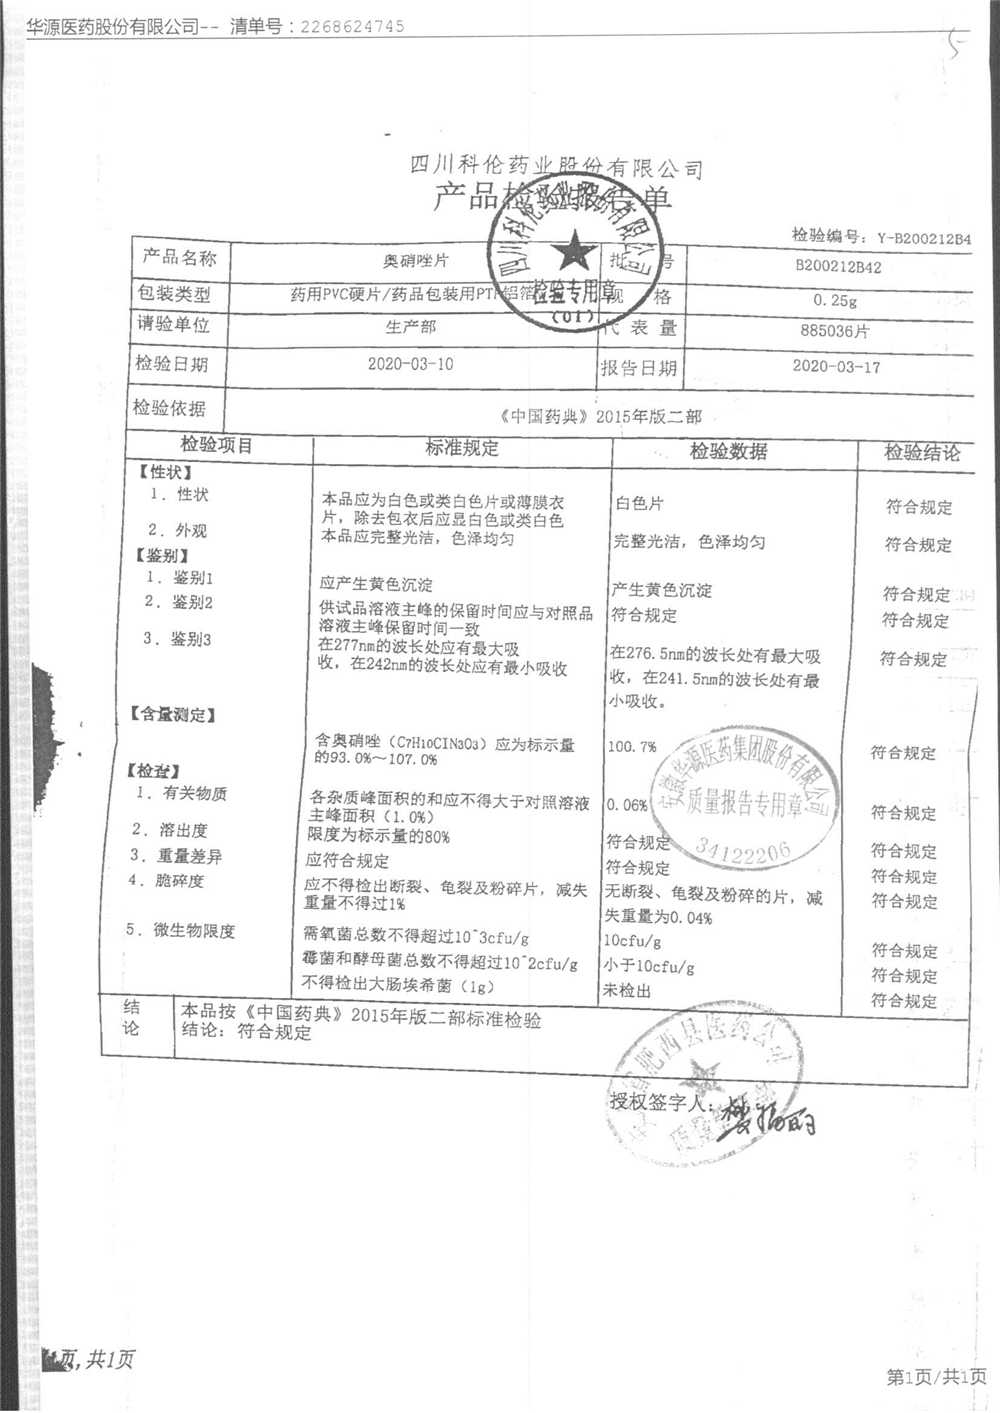 华源医药股份有限公司-- 清单号：2268624745
5
四川科伦药业股份有限公司
产品检验报告单
检验编号：Y-B200212B4
产品名称 奥硝唑片 批 号 B200212B42
包装类型 药用PVC硬片/药品包装用PTP铝箔 规 格 0.25g
请验单位 生产部 代 表 量 885036片
检验日期 2020-03-10 报告日期 2020-03-17
检验依据 《中国药典》2015年版二部
四川科伦药业股份有限公司
检验专用章
(01)
检验项目 标准规定 检验数据 检验结论
【性状】
1. 性状 本品应为白色或类白色片或薄膜衣 白色片 符合规定
片，除去包衣后应显白色或类白色
2. 外观 本品应完整光洁，色泽均匀 完整光洁，色泽均匀 符合规定
【鉴别】
1. 鉴别1 应产生黄色沉淀 产生黄色沉淀 符合规定
2. 鉴别2 供试品溶液主峰的保留时间应与对照品 符合规定 符合规定
溶液主峰保留时间一致
3. 鉴别3 在277nm的波长处应有最大吸 在276.5nm的波长处有最大吸 符合规定
收，在242nm的波长处应有最小吸收 收，在241.5nm的波长处有最
小吸收。
【含量测定】
含奥硝唑（C7H10ClN3O3）应为标示量 100.7% 符合规定
的93.0%～107.0%
【检查】
1. 有关物质 各杂质峰面积的和应不得大于对照溶液 0.06% 符合规定
主峰面积（1.0%）
2. 溶出度 限度为标示量的80% 符合规定 符合规定
3. 重量差异 应符合规定 符合规定 符合规定
4. 脆碎度 应不得检出断裂、龟裂及粉碎片，减失 无断裂、龟裂及粉碎的片，减 符合规定
重量不得过1% 失重量为0.04%
5. 微生物限度 需氧菌总数不得超过10^3cfu/g 10cfu/g 符合规定
霉菌和酵母菌总数不得超过10^2cfu/g 小于10cfu/g 符合规定
不得检出大肠埃希菌（1g） 未检出 符合规定
安徽华源医药集团股份有限公司
质量报告专用章
34122206
结论 本品按《中国药典》2015年版二部标准检验
结论：符合规定
肥西县医药公司
授权签字人：
页，共1页
第1页/共1页